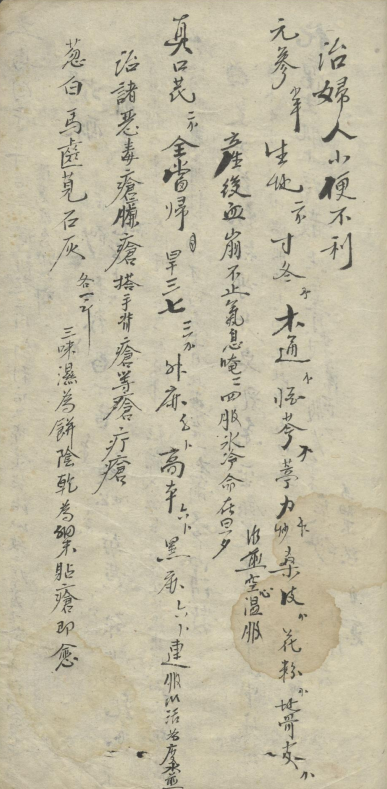 治婦人小便不利
元參 生地 寸冬 木通 條芩 葶力炒 桑皮 花粉 地骨皮
水煎空心溫服
產後血崩不止氣息唵二四服氷冷命在旦夕
真口芪 全當歸 旱三七 外麻 高本 黑 連服
治諸惡毒瘡臁瘡搭手背瘡等瘡疔瘡
葱白 馬齒莧 石灰 各一斤 三味濕為餅陰乾為細末貼瘡即愈